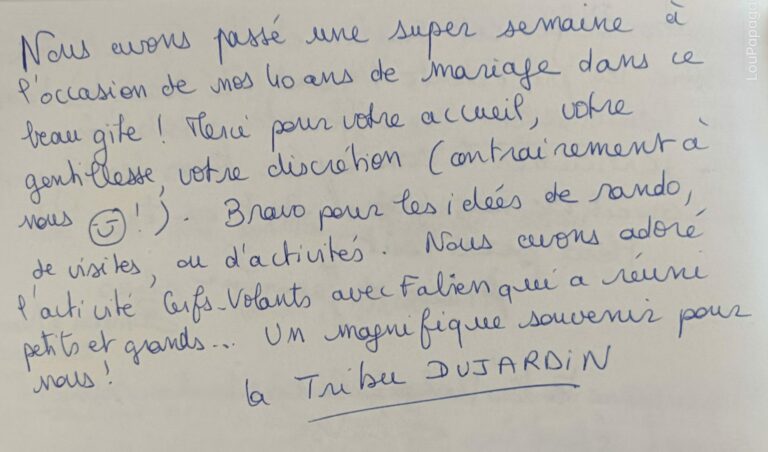 Nous avons passé une super semaine à
l'occasion de nos 40 ans de mariage dans ce
beau gite ! Merci pour votre accueil, votre
gentillesse, votre discrétion (contrairement à
nous ☺ !). Bravo pour les idées de rando,
de visites, ou d'activités. Nous avons adoré
l'activité Cerfs-Volants avec Fabien qui a réuni
petits et grands... Un magnifique souvenir pour
nous !
la Tribu DUJARDIN
LouPapaga